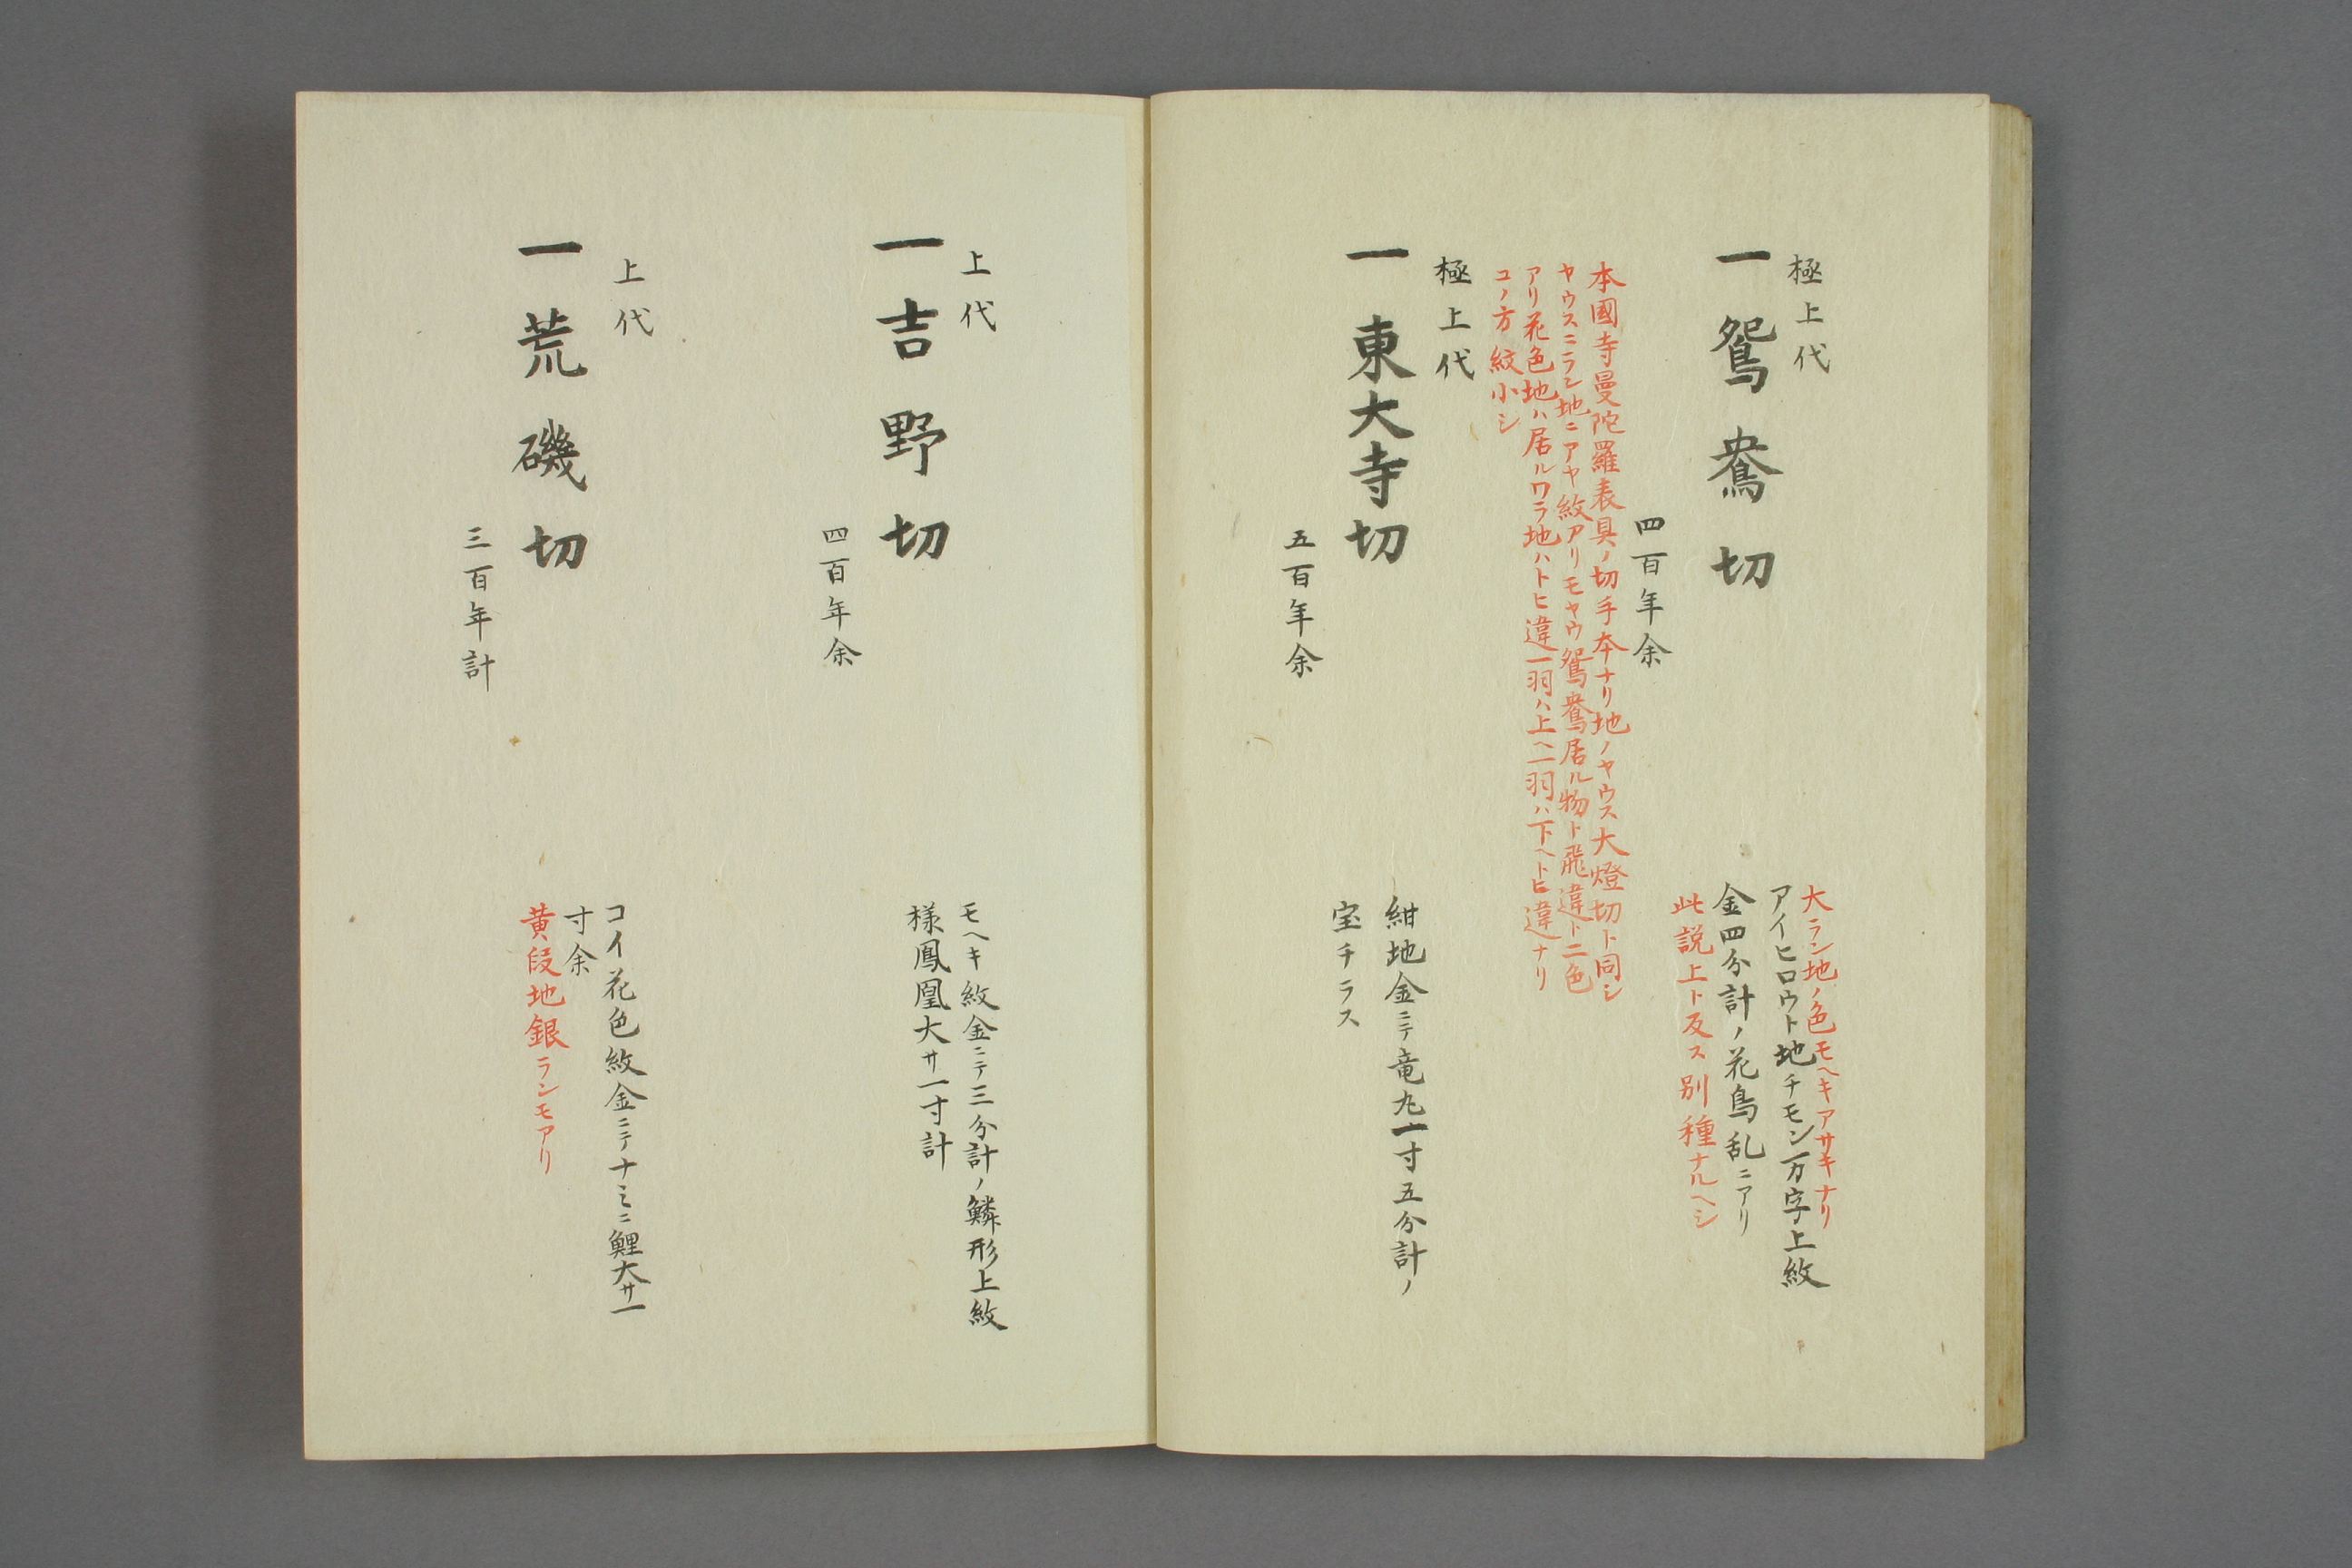 極上代
一鴛鴦切
四百年余
大ラン地ノ色モヘキアサキナリ
アイヒロウト地チモン万字上紋
金四分計ノ花鳥乱ニアリ
此説上ト反ス別種ナルヘシ
本國寺曼陀羅表具ノ切手本ナリ地ノヤウス大燈切ト同シ
ヤウスニラン地ニアヤ紋アリモヤウ鴛鴦居ル物ト飛違ト二色
アリ花色地ハ居ルワラ地ハトヒ違一羽ハ上ヘ一羽ハ下ヘトヒ違ナリ
コノ方紋小シ
極上代
一東大寺切
五百年余
紺地金ニテ竜丸一寸五分計ノ
宝チラス
上代
一吉野切
四百年余
モヘキ紋金ニテ三分計ノ鱗形上紋
様鳳凰大サ一寸計
上代
一荒磯切
三百年計
コイ花色紋金ニテナミニ鯉大サ一
寸余
黄段地銀ランモアリ